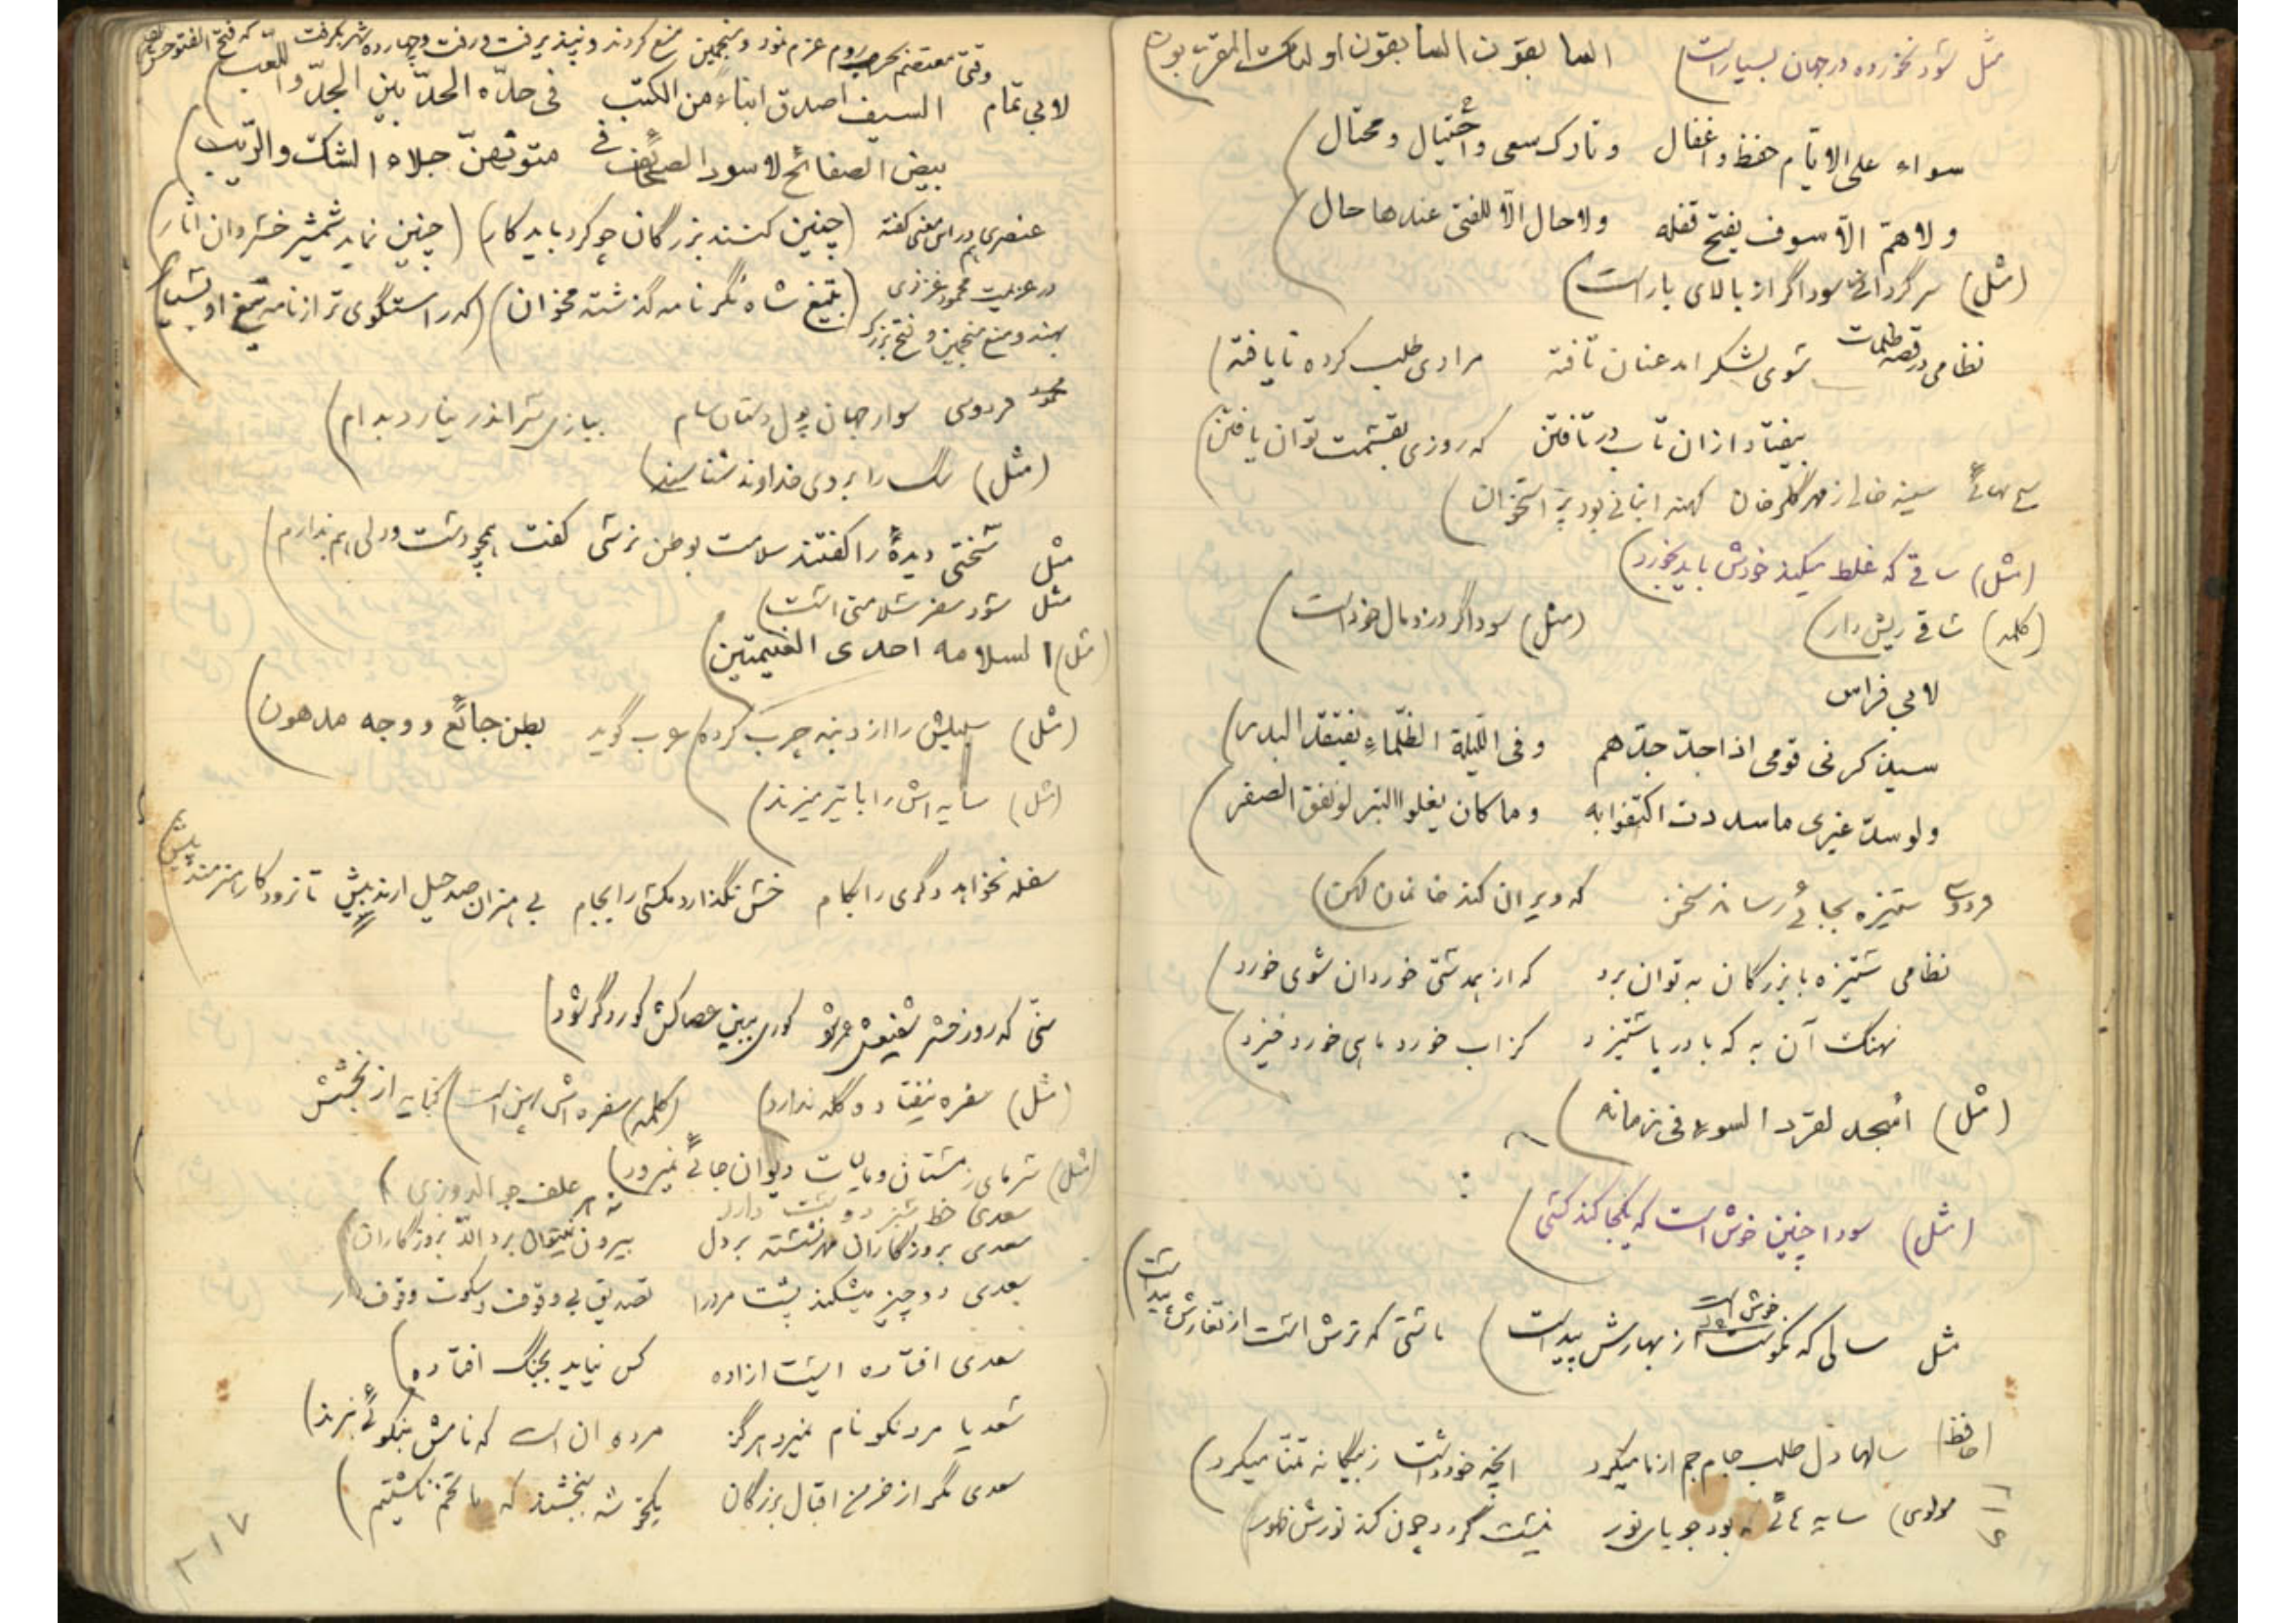 مثل سود نخورده در جهان بسیار است) السابقون السابقون اولئک المقربون)
سواء علی الایام حفظ واغفال وتارک سعی واحتیال ومحتال)
ولا همّ الّا سوف یفتح قفله ولا حال الّا للفتی عندها حال)
(مثل) سرگردانی سوداگر از بالای بار است)
نظامی در قصه ظلمات سوی لشکر امد عنان تافته مرادی طلب کرده نایافته)
بیفتاد ازان تاب در تافتن که روزی بقسمت توان یافتن)
سینه خالی ز مهر گلرخان کهنه انبانی بود پر استخوان)
(مثل) ساقی که غلط میکند خودش باید بخورد)
(کلمه) ساقی ریش دار) (مثل) سوداگر دزد مال خود است)
لابی فراس
سیذکرنی قومی اذا جدّ جدّهم وفی اللیلة الظلماءِ یفتقد البدر)
ولو سدّ غیری ما سددت اکتفوا به وما کان یغلوا التبر لو نفق الصفر)
فردوسی ستیزه بجائی رساند سخن که ویران کند خانمان کهن)
نظامی ستیزه با بزرگان به توان برد که از همدستی خوردان شوی خورد)
نهنگ آن به که با دریا ستیزد کز اب خورد ماهی خورد خیزد)
(مثل) اسجد لقرد السوء فی زمانه)
(مثل) سودا چنین خوش است که یکجا کند کسی)
خوش است
مثل سالی که نکوست از بهارش پیداست) ماستی که ترش است از تغارش پیداست)
(حافظ) سالها دل طلب جام جم از ما میکرد انچه خود داشت ز بیگانه تمنا میکرد)
مولوی) سایه بود جویای نور نیست گردد چون کند نورش ظهور)
وقتی معتصم بحرب روم عزم نمود ومنجمین منع کردند ونپذیرفت ورفت وچهارده شهر بگرفت که فتح الفتوحش
لابی تمّام السیف اصدق انباءً من الکتب فی حدّه الحدّ بین الجدّ واللعب)
بیض الصفائح لا سود الصحائف فی متونهنّ جلاء الشک والریب)
عنصری هم در این معنی گفته (چنین کنند بزرگان چو کرد باید کار) (چنین نماید شمشیر خسروان اثار)
در عزیمت محمود غزنوی (بتیغ شاه نگر نامه گذشته مخوان) (که راستگوی تر از نامه تیغ او بسیار)
بهند ومنع منجمین وفتح بزرگ
فردوسی سوار جهان پور دستان سام ببازی سر اندر نیارد بدام)
(مثل) سگ را بروی خداوند شناسند)
مثل سختی دیدهٔ را گفتند سلامت بوطن نرسی گفت همچو دست ودلی هم ندارم)
مثل سود سفر سلامتی است)
(مثل) السلامه احدی الغنیمتین)
(مثل) سبیلش را از دنبه چرب کرده) عرب گوید بطن جائع ووجه مدهون)
(مثل) سایه اش را با تیر میزند)
سفله نخواهد دگری را بکام خس نگذارد مگسی را بجام بی هنران صد حیل ارند پیش تا نرود کار هنرمند پیش)
سنّی که روز حشر شفیعش عمر شود کوری ببین عصاکش کور دگر شود)
(مثل) سفره نیفتاده گله ندارد) (کلمه) سفره اش پهن است) کنایه از بخشش
(مثل) سرمای زمستان ومالیات دیوان جائی نمیرود)
سعدی بروزگاران مهر نشسته بر دل بیرون نمیتوان برد الّا بروزگاران)
سعدی دو چیز میشکند پشت مرد را تصدیق بی وقوف وسکوت وقوف دار
سعدی افتاده ایست ازاده کس نیاید بجنگ افتاده)
سعدیا مرد نکو نام نمیرد هرگز مرده ان است که نامش بنکوئی نبرند)
سعدی مگر از خرمن اقبال بزرگان یکخوشه ببخشند که ما تخم نکشتیم)
۳۱۷